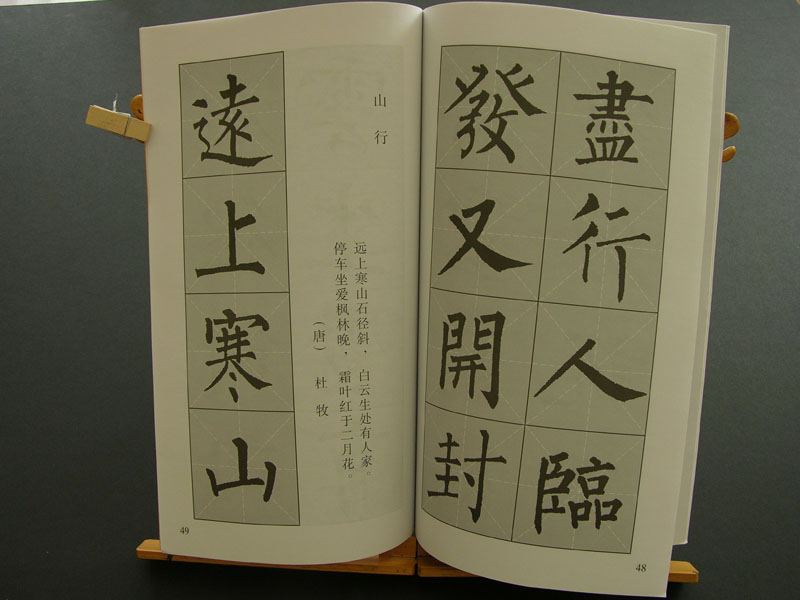 盡行人臨
發又開封
48
山行
远上寒山石径斜，白云生处有人家。
停车坐爱枫林晚，霜叶红于二月花。
（唐）杜牧
遠上寒山
49